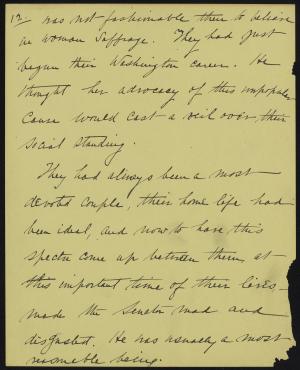 12/ was not fashionable then to believe
in Woman Suffrage. They had just
begun their Washington career. He
thought her advocacy of this unpopular
cause would cast a veil over their
social standing.
They had always been a most
devoted couple, their home life had
been ideal, and now to have this
spectre come up between them at
this important time of their lives-
made the Senator mad and
disgusted. He was usually a most
reasonable being.